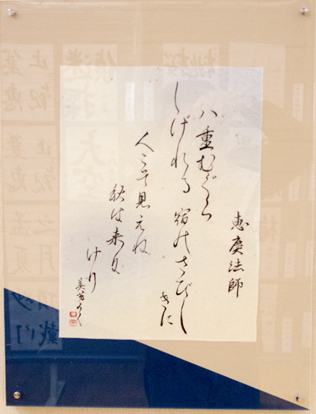 恵慶法師
八重むぐら
しげれる宿のさびしきに
人こそ見えね
秋は来に
けり